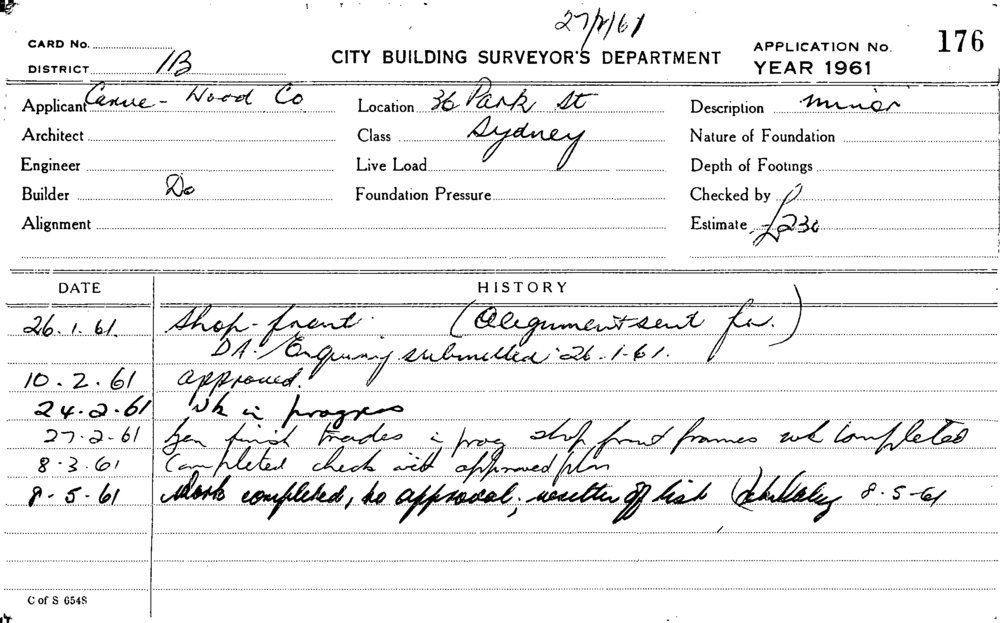 27/2/61
CARD No.
DISTRICT 1B
CITY BUILDING SURVEYOR'S DEPARTMENT
APPLICATION No. 176
YEAR 1961
Applicant - Wood Co
Location 36 Park St
Description minor
Architect
Class Sydney
Nature of Foundation
Engineer
Live Load
Depth of Footings
Builder Do
Foundation Pressure
Checked by
Alignment
Estimate £230
DATE HISTORY
26.1.61. Shop-front. (Alignment sent for.)
DA./Enquiry submitted 26.1.61.
10.2.61 approved.
24.2.61 Wk in progress
27.2.61 Gen finish trades i prog shop front frames wk completed
8-3.61 Completed check with approved plan
8-5-61 Work completed, to approval, written off list 8.5-61
C of S 654S